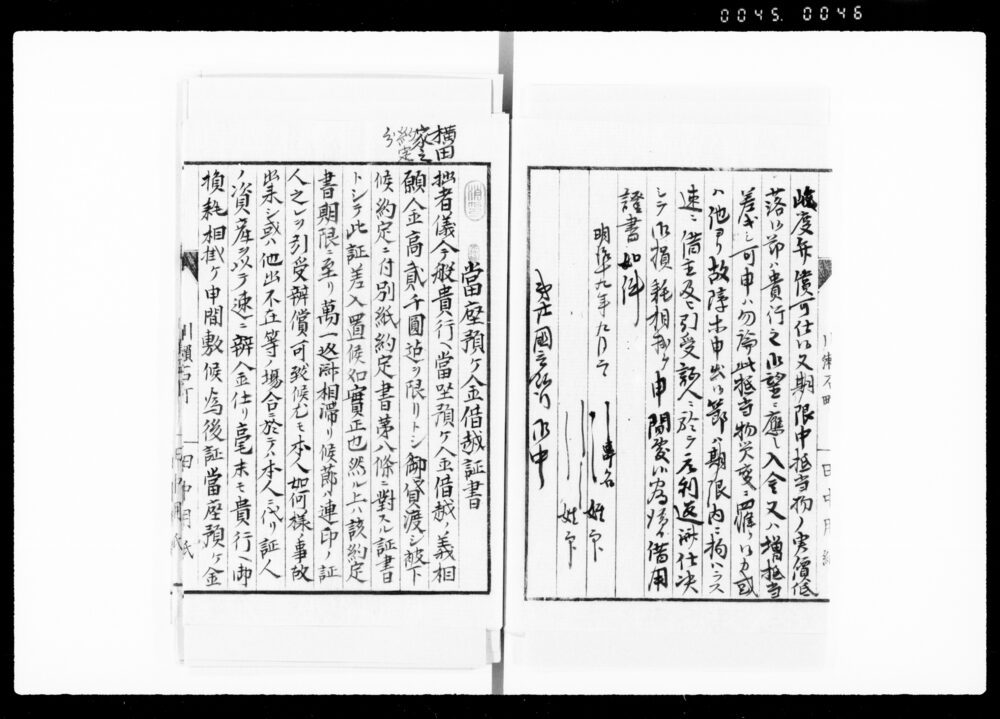 0045. 0046
峻度弁償可仕候又期限中抵当物ノ実價低
落候節ハ貴行之御望ニ應シ入金又ハ増抵当
差出シ可申ハ勿論此抵当物災変ニ罹リ候カ或
ハ他ヨリ故障等申出候節ハ期限内ニ拘ハラス
速ニ借主及ヒ引受証人ニ於テ元利返済仕決
シテ御損耗相掛ケ申間敷候為後日借用
證書如件
明治十九年九月
姓名
姓名
第 國立銀行御中
横田
家之
約定
分
當座預ヶ金借越証書
拙者儀今般貴行ヘ當座預ヶ金借越ノ義相
願金高貳千圓迠ヲ限リトシ御貸渡シ被下
候約定ニ付別紙約定書第八條ニ對スル証書
トシテ此証差入置候処實正也然ル上ハ該約定
書期限ニ至リ萬一返済相滞リ候莭ハ連印ノ証
人之レヲ引受辨償可致候尤モ本人如何様ノ事故
出来シ或ハ他出不在等ノ場合ニ於テハ本人ニ代リ証人
ノ資産ヲ以テ速ニ辨金仕リ毫末モ貴行ヘ御
損耗相掛ヶ申間敷候為後証當座預ヶ金